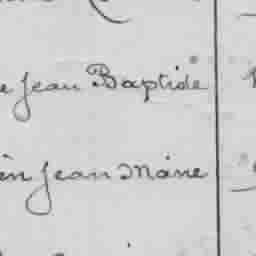 e Jean Baptiste
en Jean Marie